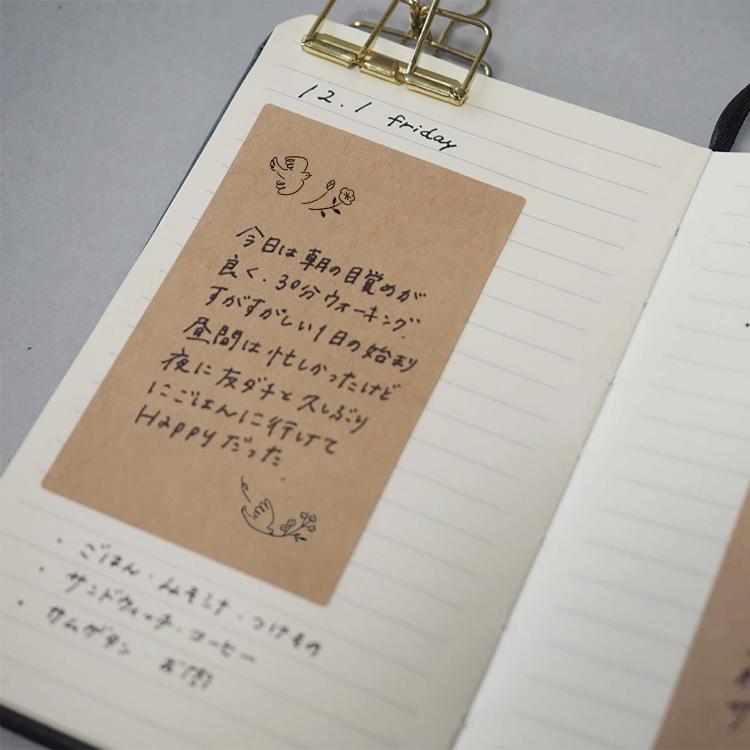 12.1 friday
今日は朝の目覚めが
良く、30分ウォーキング.
すがすがしい1日の始まり
昼間は忙しかったけど
夜に友ダチと久しぶり
にごはんに行けて
Happyだった.
・ごはん・みそシル・つけもの
・サンドウィッチ・コーヒー
・サムゲタン・お酒